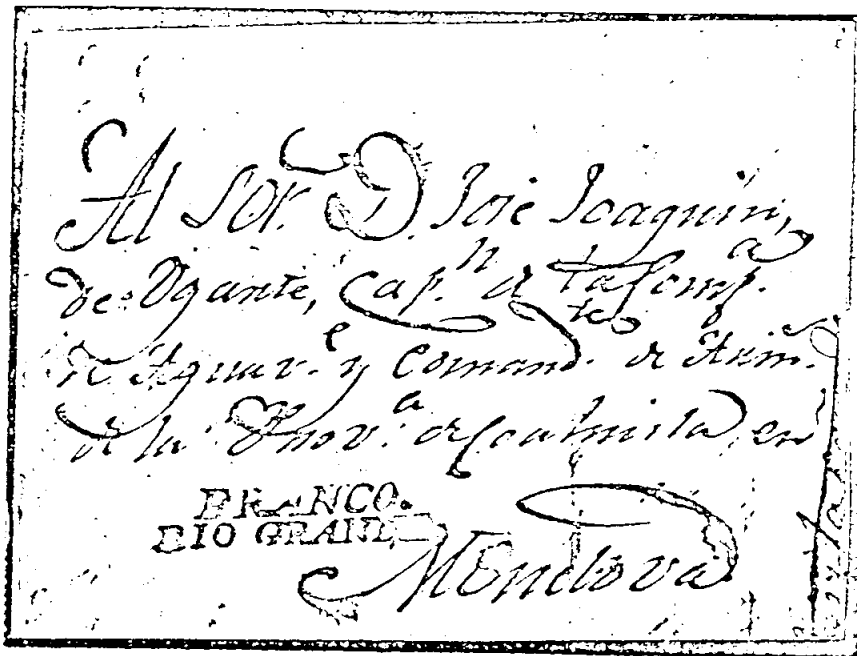 Al Sor. D. José Joaquin,
de Ugarte, Cap.n de la Comp.a
de Aguav.e y Comand.te de Arm.s
de la Prov.a de Coahuila, en
FRANCO.
RIO GRANDE
Mendova